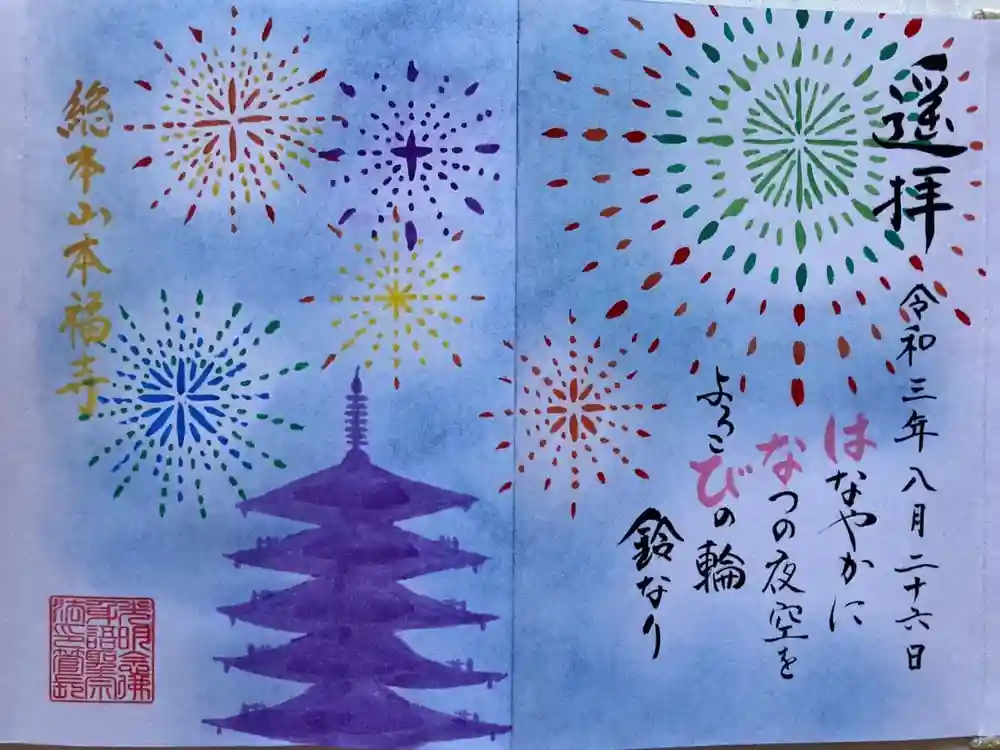 遥拝
令和三年八月二十六日
はなやかに
なつの夜空を
よろこびの輪
鈴なり
総本山本福寺